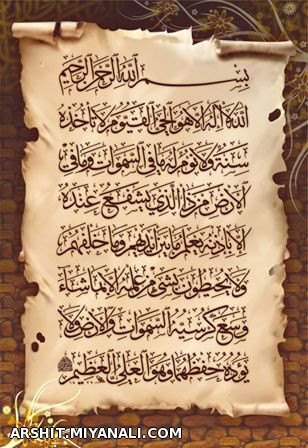 بِسْمِ اللهِ الرَّحْمٰنِ الرَّحِيمِ
اَللهُ لَا اِلٰهَ اِلَّا هُوَ الْحَيُّ الْقَيُّومُ لَا تَأْخُذُهُ
سِنَةٌ وَلَا نَوْمٌ لَهُ مَا فِي السَّمٰوَاتِ وَمَا فِي
الْاَرْضِ مَنْ ذَا الَّذِي يَشْفَعُ عِنْدَهُ
اِلَّا بِاِذْنِهِ يَعْلَمُ مَا بَيْنَ اَيْدِيهِمْ وَمَا خَلْفَهُمْ
وَلَا يُحِيطُونَ بِشَيْءٍ مِنْ عِلْمِهِ اِلَّا بِمَا شَاءَ
وَسِعَ كُرْسِيُّهُ السَّمٰوَاتِ وَالْاَرْضَ وَلَا
يَؤُدُهُ حِفْظُهُمَا وَهُوَ الْعَلِيُّ الْعَظِيمُ
ARSHIT.MIYANALI.COM